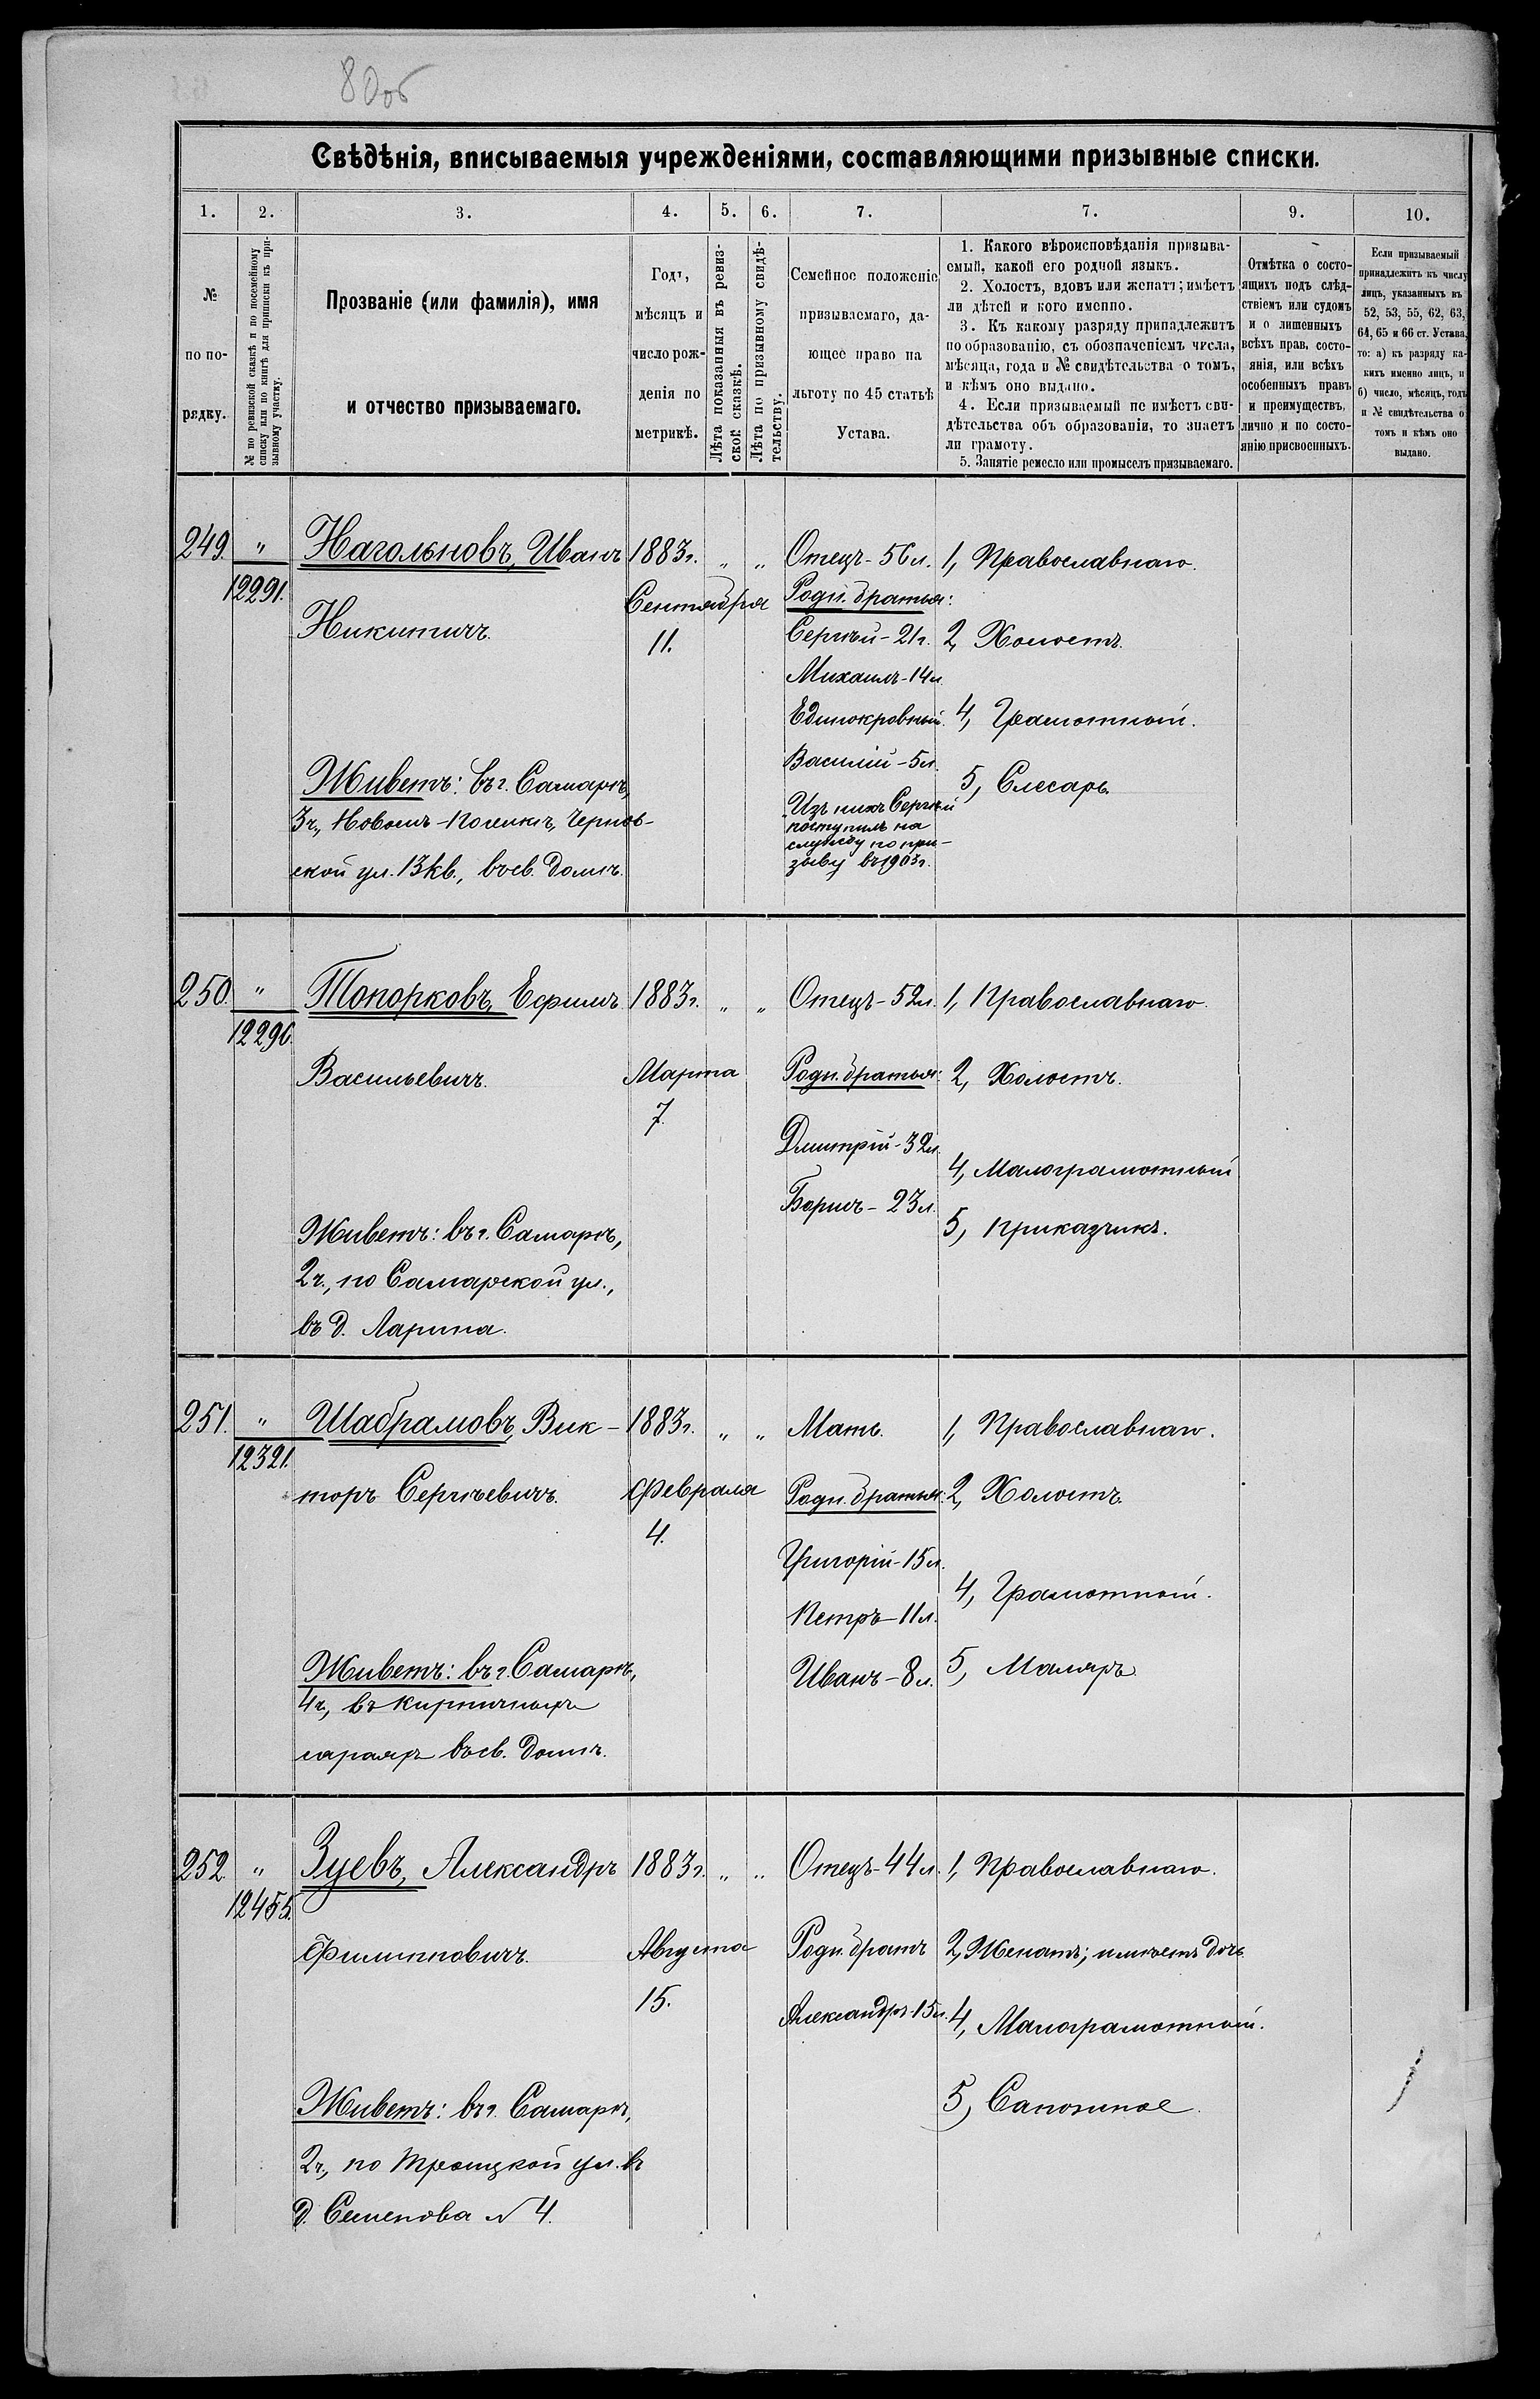 80об
Свѣдѣнія, вписываемыя учрежденіями, составляющими призывные списки.
1. 2. 3. 4. 5. 6. 7. 7. 9. 10.
№ по по- рядку.
№ по ревизской сказкѣ и по посемейному
списку или по книгѣ для приписки къ при-
зывному участку.
Прозваніе (или фамилія), имя
и отчество призываемаго.
Годъ,
мѣсяцъ и
число рож-
денія по
метрикѣ.
Лѣта показанныя въ ревиз-
ской сказкѣ.
Лѣта по призывному свидѣ-
тельству.
Семейное положеніе
призываемаго, да-
ющее право на
льготу по 45 статьѣ
Устава.
1. Какого вѣроисповѣданія призыва-
емый, какой его родной языкъ.
2. Холостъ, вдовъ или женатъ; имѣетъ
ли дѣтей и кого именно.
3. Къ какому разряду принадлежитъ
по образованію, съ обозначеніемъ числа,
мѣсяца, года и № свидѣтельства о томъ,
и кѣмъ оно выдано.
4. Если призываемый не имѣетъ сви-
дѣтельства объ образованіи, то знаетъ
ли грамоту.
5. Занятіе ремесло или промыселъ призываемаго.
Отмѣтка о состо-
ящихъ подъ слѣд-
ствіемъ или судомъ
и о лишенныхъ
всѣхъ прав. состо-
янія, или всѣхъ
особенныхъ правъ
и преимуществъ,
лично и по состо-
янію присвоенныхъ.
Если призываемый
принадлежитъ къ числу
лицъ, указанныхъ въ
52, 53, 55, 62, 63,
64, 65 и 66 ст. Устава,
то: а) къ разряду ка-
кихъ именно лицъ, и
б) число, мѣсяцъ, годъ
и № свидѣтельства о
томъ и кѣмъ оно
выдано.
249. "
12291.
Нагольновъ, Иванъ
Никитичъ.
Живетъ: въ г. Самарѣ,
3 ч., Новомъ-Поселкѣ, Чернов-
ской ул. 13 кв., въ св. домѣ.
1883 г. " "
Сентября
11.
Отецъ - 56 л.
Родн. братья:
Сергѣй - 21 г.
Михаилъ - 14 л.
Единокровный
Василій - 5 л.
Изъ нихъ Сергѣй
поступилъ на
службу по при-
зыву въ 1903 г.
1, Православнаго.
2, Холостъ.
4, Грамотный.
5, Слесарь.
250. "
12290.
Топорковъ, Ефимъ
Васильевичъ.
Живетъ: въ г. Самарѣ,
2 ч., по Самарской ул.,
въ д. Ларина.
1883 г. " "
Марта
7.
Отецъ - 52 л.
Родн. братья:
Дмитрій - 32 л.
Борисъ - 23 л.
1, Православнаго.
2, Холостъ.
4, Малограмотный
5, Приказчикъ.
251. "
12321.
Шабрамовъ, Вик-
торъ Сергѣевичъ.
Живетъ: въ г. Самарѣ,
4 ч., въ кирпичныхъ
сараяхъ въ св. домѣ.
1883 г. " "
Февраля
4.
Мать.
Родн. братья:
Григорій - 15 л.
Петръ - 11 л.
Иванъ - 8 л.
1, Православнаго.
2, Холостъ.
4, Грамотный.
5, Маляръ.
252. "
12455.
Зуевъ, Александръ
Филипповичъ.
Живетъ: въ г. Самарѣ,
2 ч., по Троицкой ул. въ
д. Семенова № 4.
1883 г. " "
Августа
15.
Отецъ - 44 л.
Родн. братъ
Александръ - 15 л.
1, Православнаго.
2, Женатъ; имѣетъ дочь.
4, Малограмотный.
5, Сапожное.